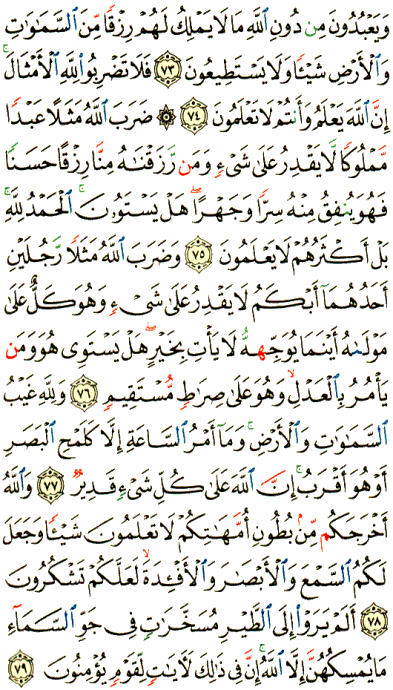 وَيَعْبُدُونَ مِن دُونِ ٱللَّهِ مَا لَا يَمْلِكُ لَهُمْ رِزْقًا مِّنَ ٱلسَّمَٰوَٰتِ
وَٱلْأَرْضِ شَيْـًٔا وَلَا يَسْتَطِيعُونَ ٧٣ فَلَا تَضْرِبُوا۟ لِلَّهِ ٱلْأَمْثَالَ ۚ
إِنَّ ٱللَّهَ يَعْلَمُ وَأَنتُمْ لَا تَعْلَمُونَ ٧٤ ۞ ضَرَبَ ٱللَّهُ مَثَلًا عَبْدًا
مَّمْلُوكًا لَّا يَقْدِرُ عَلَىٰ شَىْءٍ وَمَن رَّزَقْنَٰهُ مِنَّا رِزْقًا حَسَنًا
فَهُوَ يُنفِقُ مِنْهُ سِرًّا وَجَهْرًا ۖ هَلْ يَسْتَوُۥنَ ۚ ٱلْحَمْدُ لِلَّهِ ۚ
بَلْ أَكْثَرُهُمْ لَا يَعْلَمُونَ ٧٥ وَضَرَبَ ٱللَّهُ مَثَلًا رَّجُلَيْنِ
أَحَدُهُمَآ أَبْكَمُ لَا يَقْدِرُ عَلَىٰ شَىْءٍ وَهُوَ كَلٌّ عَلَىٰ
مَوْلَىٰهُ أَيْنَمَا يُوَجِّههُّ لَا يَأْتِ بِخَيْرٍ ۖ هَلْ يَسْتَوِى هُوَ وَمَن
يَأْمُرُ بِٱلْعَدْلِ ۙ وَهُوَ عَلَىٰ صِرَٰطٍ مُّسْتَقِيمٍ ٧٦ وَلِلَّهِ غَيْبُ
ٱلسَّمَٰوَٰتِ وَٱلْأَرْضِ ۚ وَمَآ أَمْرُ ٱلسَّاعَةِ إِلَّا كَلَمْحِ ٱلْبَصَرِ
أَوْ هُوَ أَقْرَبُ ۚ إِنَّ ٱللَّهَ عَلَىٰ كُلِّ شَىْءٍ قَدِيرٌ ٧٧ وَٱللَّهُ
أَخْرَجَكُم مِّنۢ بُطُونِ أُمَّهَٰتِكُمْ لَا تَعْلَمُونَ شَيْـًٔا وَجَعَلَ
لَكُمُ ٱلسَّمْعَ وَٱلْأَبْصَٰرَ وَٱلْأَفْـِٔدَةَ ۙ لَعَلَّكُمْ تَشْكُرُونَ
٧٨ أَلَمْ يَرَوْا۟ إِلَى ٱلطَّيْرِ مُسَخَّرَٰتٍ فِى جَوِّ ٱلسَّمَآءِ
مَا يُمْسِكُهُنَّ إِلَّا ٱللَّهُ ۗ إِنَّ فِى ذَٰلِكَ لَـَٔايَٰتٍ لِّقَوْمٍ يُؤْمِنُونَ ٧٩